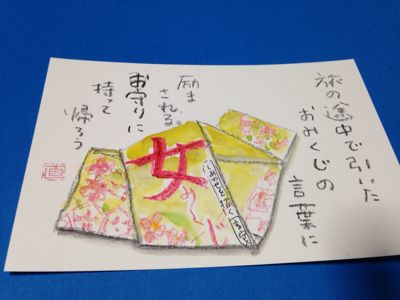 旅の途中で引いた
おみくじの
言葉に
励ま
される。
お守りに
持って
帰ろう
女